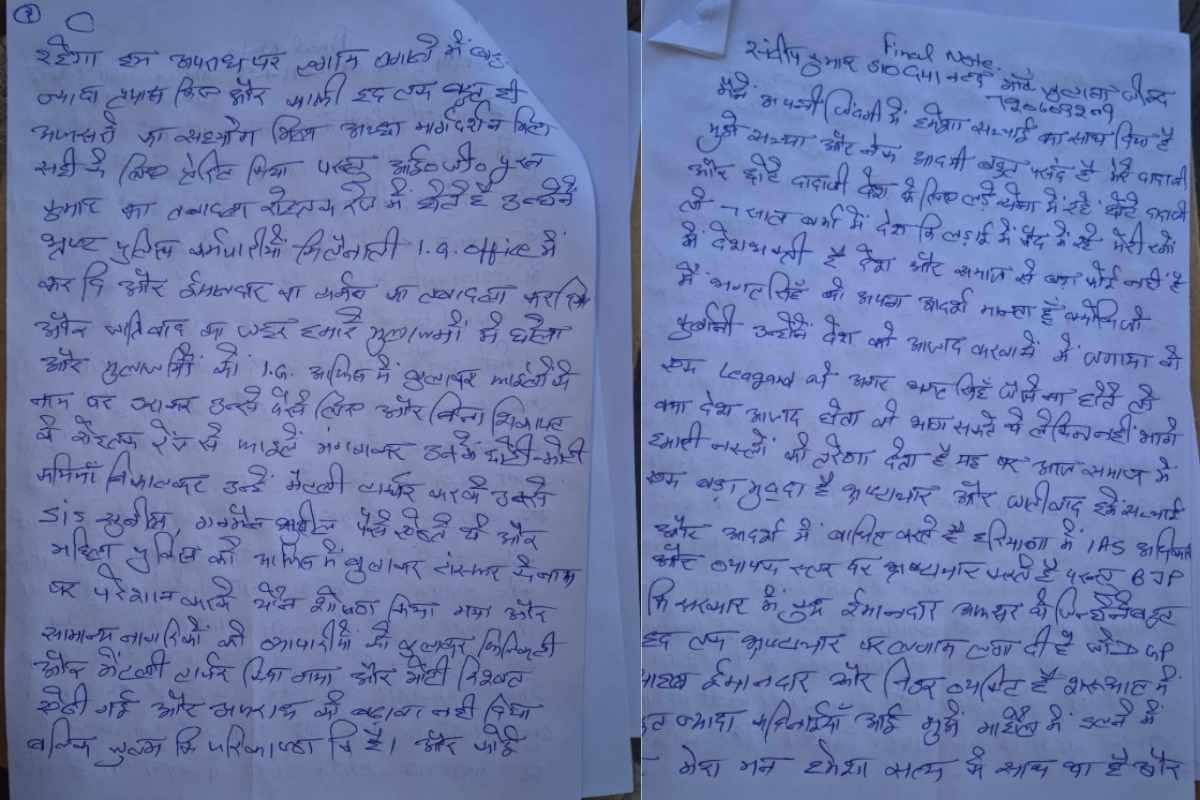 2
रहेगा हम अपराध पर लगाम लगाने में बहुत
ज्यादा प्रयास किए और काफी हद तक बहुत ही
अफसरों का सहयोग मिला अच्छा मार्गदर्शन मिला
सही के लिए प्रेरित किया परन्तु आई॰ जी॰ पूरन
कुमार का तबादला रोहतक रेंज में होते है उन्होंने
भ्रष्ट पुलिस कर्मचारीयों कि तैनाती I.G. office में
कर दि और ईमानदार का तबादला कर दिया
और जातिवाद का जहर हमारे मुलाजमों में घोला
और मुलाजमों को I.G. ऑफिस में बुलाकर फाईलों के
नाम पर डराकर उनसे पैसे लिए और बिना शिकायत
के रोहतक रेंज से फाइलें मंगवाकर उनमें छोटी-मोटी
कमियां निकालकर उन्हें मेंटली टार्चर करके उनसे
सुनील, गनमैन सुशील पैसे ऐंठते थे और
महिला पुलिस को ऑफिस में बुलाकर ट्रांसफर के नाम
पर परेशान करके यौन शोषण किया गया और
सामान्य नागरिकों को व्यापारीयों को बुलाकर फिजिकली
और मेंटली टार्चर किया गया और मोटी रिश्वत
ऐंठी गई और अपराध को बढ़ावा नहीं दिया
बल्कि जुल्म कि पराकाष्ठा कि है। और कोई
Final Note.
संदीप कुमार S/O दयानन्द गांव जुलाना जीन्द
मैंने अपनी जिंदगी में हमेशा सच्चाई का साथ दिया है
मुझे सच्चा और नेक आदमी बहुत पसंद है मेरे दादाजी
और छोटे दादाजी देश के लिए लड़े सेना में रहे छोटे दादाजी
तो 7 साल बर्मा में देश कि लड़ाई में कैद में रहे मेरी रगों
में देशभक्ती है देश और समाज से बड़ा कोई नहीं है
मैं भगत सिंह को अपना आदर्श मानता हूँ क्योंकि जो
कुर्बानी उन्होंने देश को आजाद करवाने में लगाया वो
एक Leagand थे अगर भगत सिंह जैसे ना होते तो
क्या देश आजाद होता वो भाग सकते थे लेकिन नहीं भागे
हमारी नस्लों को प्रेरणा देता है यह पर आज समाज में
एक बड़ा मुद्दा है भ्रष्टाचार और जातीवाद हमें सच्चाई
और आदर्श में बाधित करते है हरियाणा में IAS अधिकारी
और व्यापक स्तर पर भ्रष्टाचार करते है परन्तु BJP
कि सरकार में कुछ ईमानदार अफसर थे जिन्होंने बहुत
हद तक भ्रष्टाचार पर लगाम लगा दी है जैसे DGP
साहब ईमानदार और निडर व्यक्ति है शुरूआत में
बहुत ज्यादा कठिनाईयाँ आई मुझे माहौल में ढलने में
मेरा मन हमेशा सत्य के साथ था है और